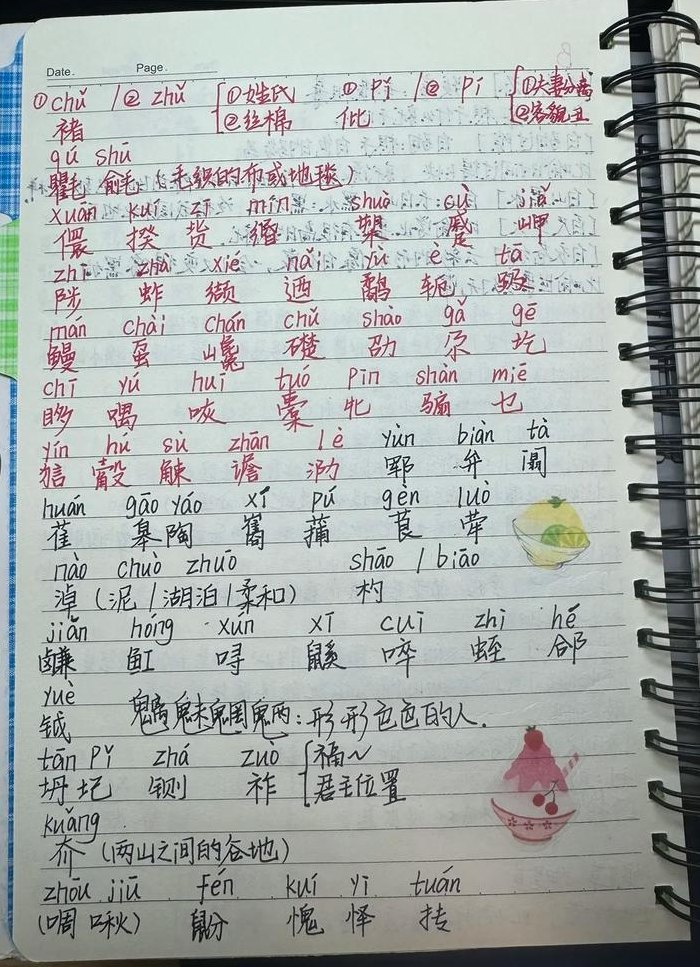 Date. Page.
①chǔ /② zhǔ {①姓氏 ②丝棉 ① pǐ /② pí {①夫妻分离 ②容貌丑
褚 仳
qú shū
氍毹(毛织的布或地毯)
xuān kuí zī mín shuò cù jiǎ
儇 揆 赀 缗 槊 蹙 岬
zhì zhà xié nǎi yù è tā
陟 蚱 缬 迺 鹬 轭 趿
mán chài chán chǔ shào gǎ gē
鳗 虿 巉 礎 劭 尕 圪
chī yú huī tuó pìn shàn miē
眵 喁 咴 橐 牝 骟 乜
yín hú sù zhān lè yùn biàn tà
狺 觳 觫 谵 泐 郓 弁 闒
huán gāo yáo xī pú gèn luò
萑 皋陶 巂 蒲 茛 荦
nào chuò zhuō sháo / biāo
淖 (泥 / 湖泊 / 柔和) 杓
jiǎn hóng xún xī cuī zhì hé
鹻 魟 㖊 鼷 啐 蛭 郃
yuè
钺 魑魅魍魉：形形色色的人.
tān pǐ zhá zuò {福~
坍圮 铡 祚 君王位置
kuǎng
夼 (两山之间的谷地)
zhōu jiū fén kuí yì tuán
(啁啾) 鼢 愧 怿 抟